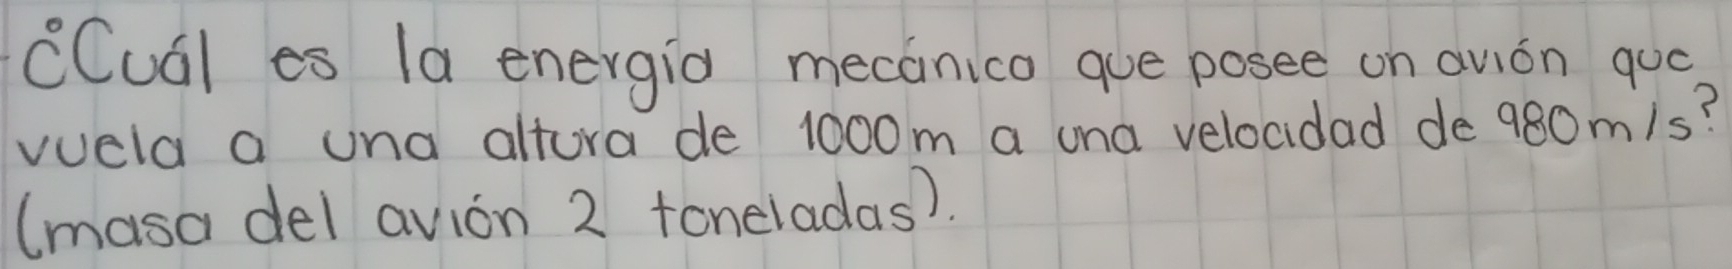 ¿Cuál es la energía mecánica que posee un avión que
vuela a una altura de 1000m a una velocidad de 980m/s?
(masa del avión 2 toneladas).